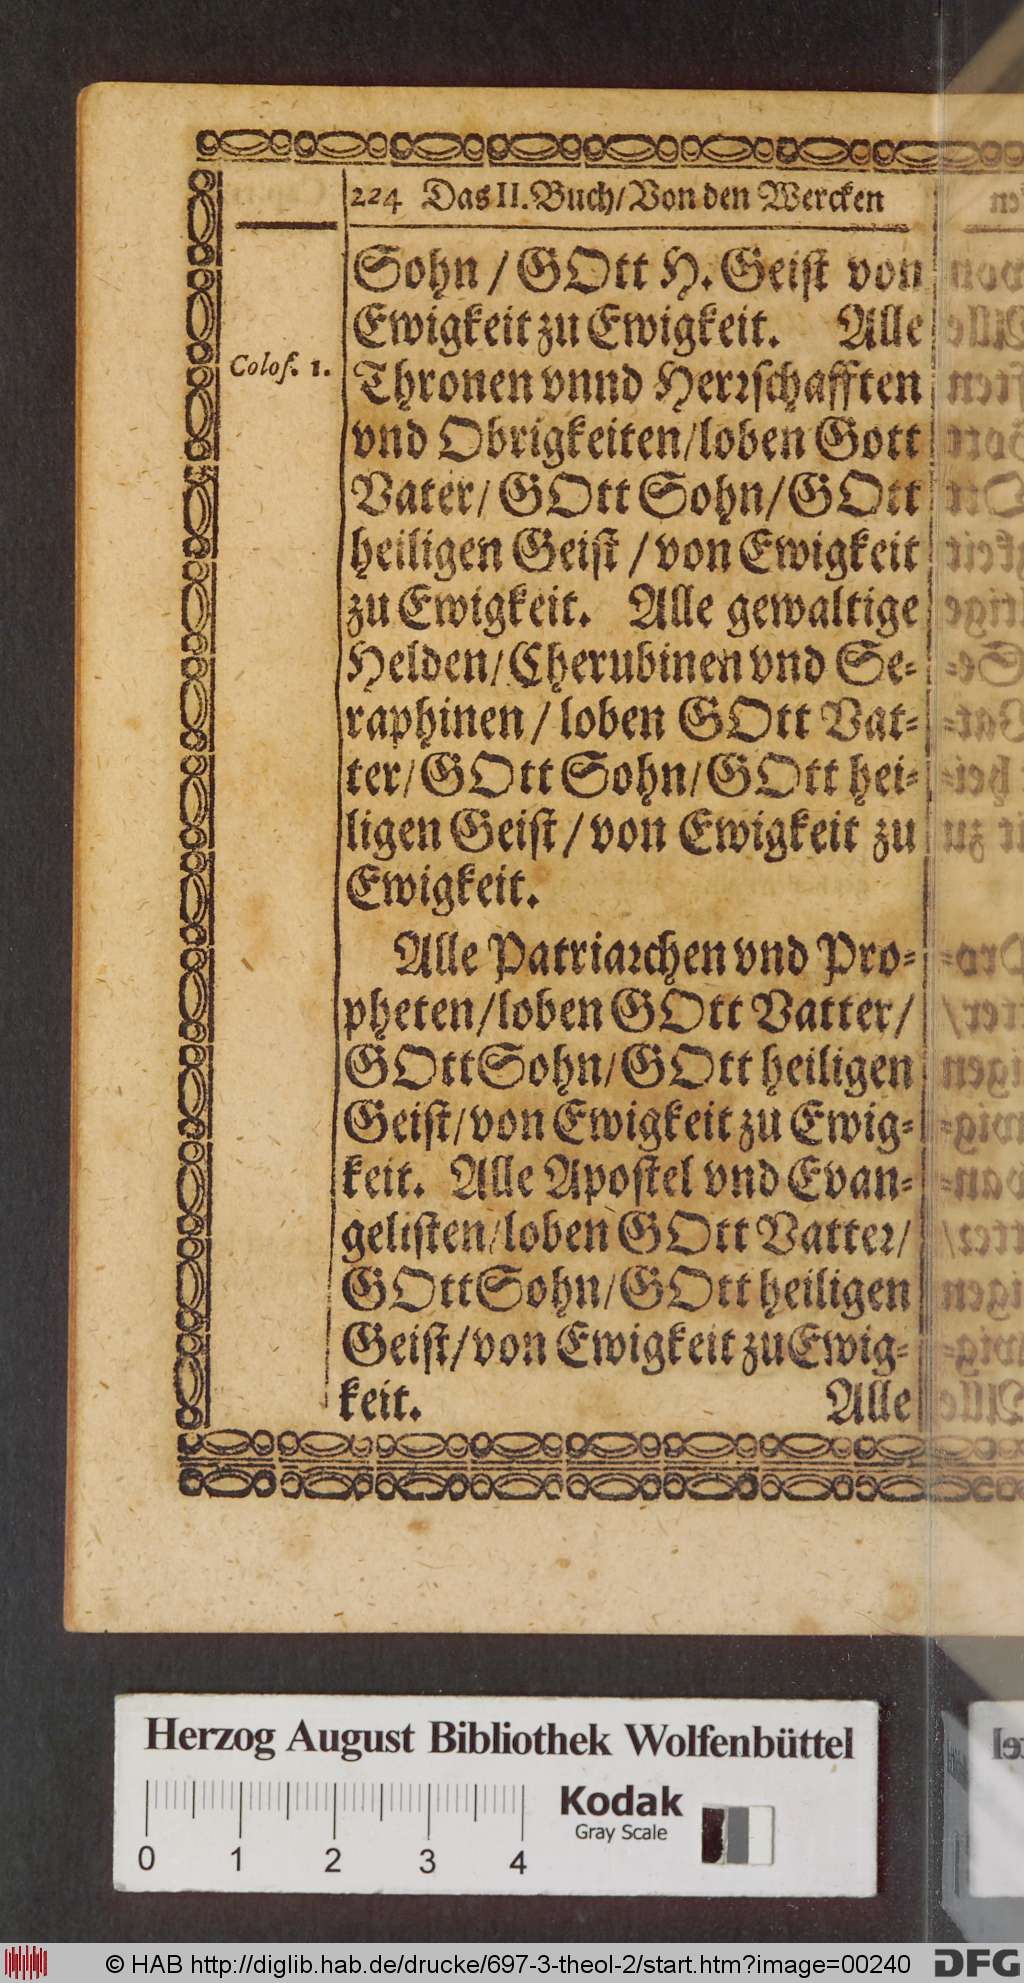 224 Das II. Buch/ Von den Wercken
Sohn / GOtt H. Geist von
Ewigkeit zu Ewigkeit. Alle
Colos. 1.
Thronen vnnd Herrschafften
vnd Obrigkeiten/loben Gott
Vater/ GOtt Sohn/ GOtt
heiligen Geist / von Ewigkeit
zu Ewigkeit. Alle gewaltige
Helden/ Cherubinen vnd Se-
raphinen / loben GOtt Vat-
ter/ GOtt Sohn/ GOtt hei-
ligen Geist / von Ewigkeit zu
Ewigkeit.
Alle Patriarchen vnd Pro-
pheten/loben GOtt Vatter/
GOtt Sohn/ GOtt heiligen
Geist/ von Ewigkeit zu Ewig-
keit. Alle Apostel vnd Evan-
gelisten/loben GOtt Vatter/
GOtt Sohn/ GOtt heiligen
Geist/ von Ewigkeit zu Ewig-
keit. Alle
Herzog August Bibliothek Wolfenbüttel
Kodak
Gray Scale
0 1 2 3 4
© HAB http://diglib.hab.de/drucke/697-3-theol-2/start.htm?image=00240
DFG